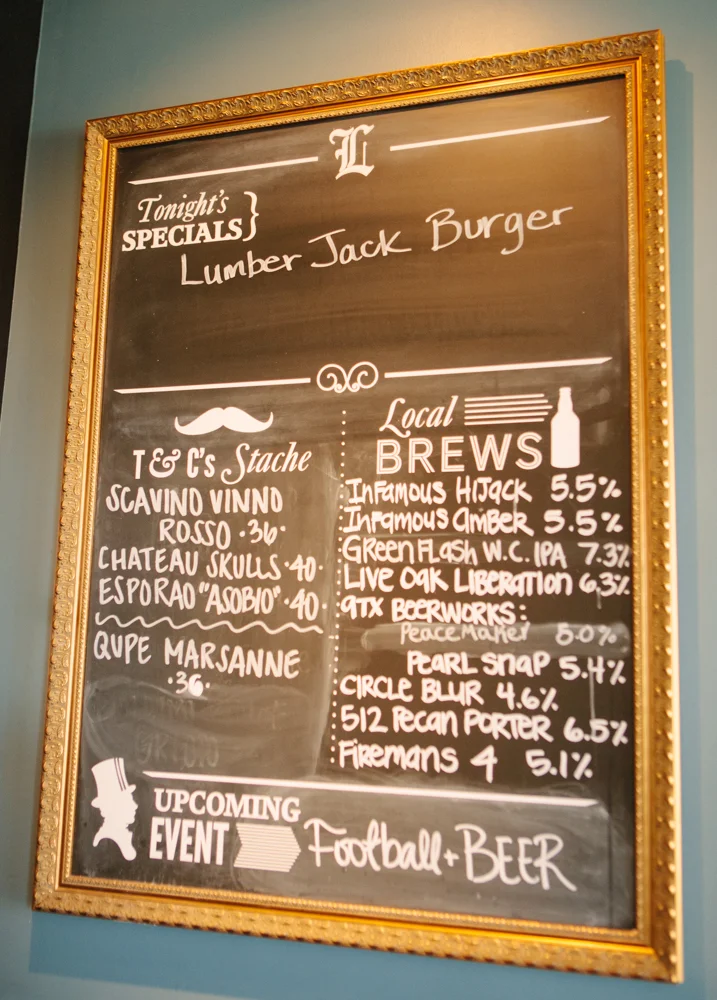 L
Tonight's
SPECIALS
Lumber Jack Burger
T & C's Stache
SCAVINO VINNO
ROSSO ·36·
CHATEAU SKULLS ·40·
ESPORAO "ASOBIO" ·40·
QUPE MARSANNE
·36·
Local
BREWS
INFAMOUS HIJACK 5.5%
INFAMOUS AMBER 5.5%
GREEN FLASH W.C. IPA 7.3%
LIVE OAK LIBERATION 6.3%
ATX BEERWORKS:
PEACEMAKER 5.0%
PEARL SNAP 5.4%
CIRCLE BLUR 4.6%
512 PECAN PORTER 6.5%
FIREMANS 4 5.1%
UPCOMING
EVENT
Football + BEER